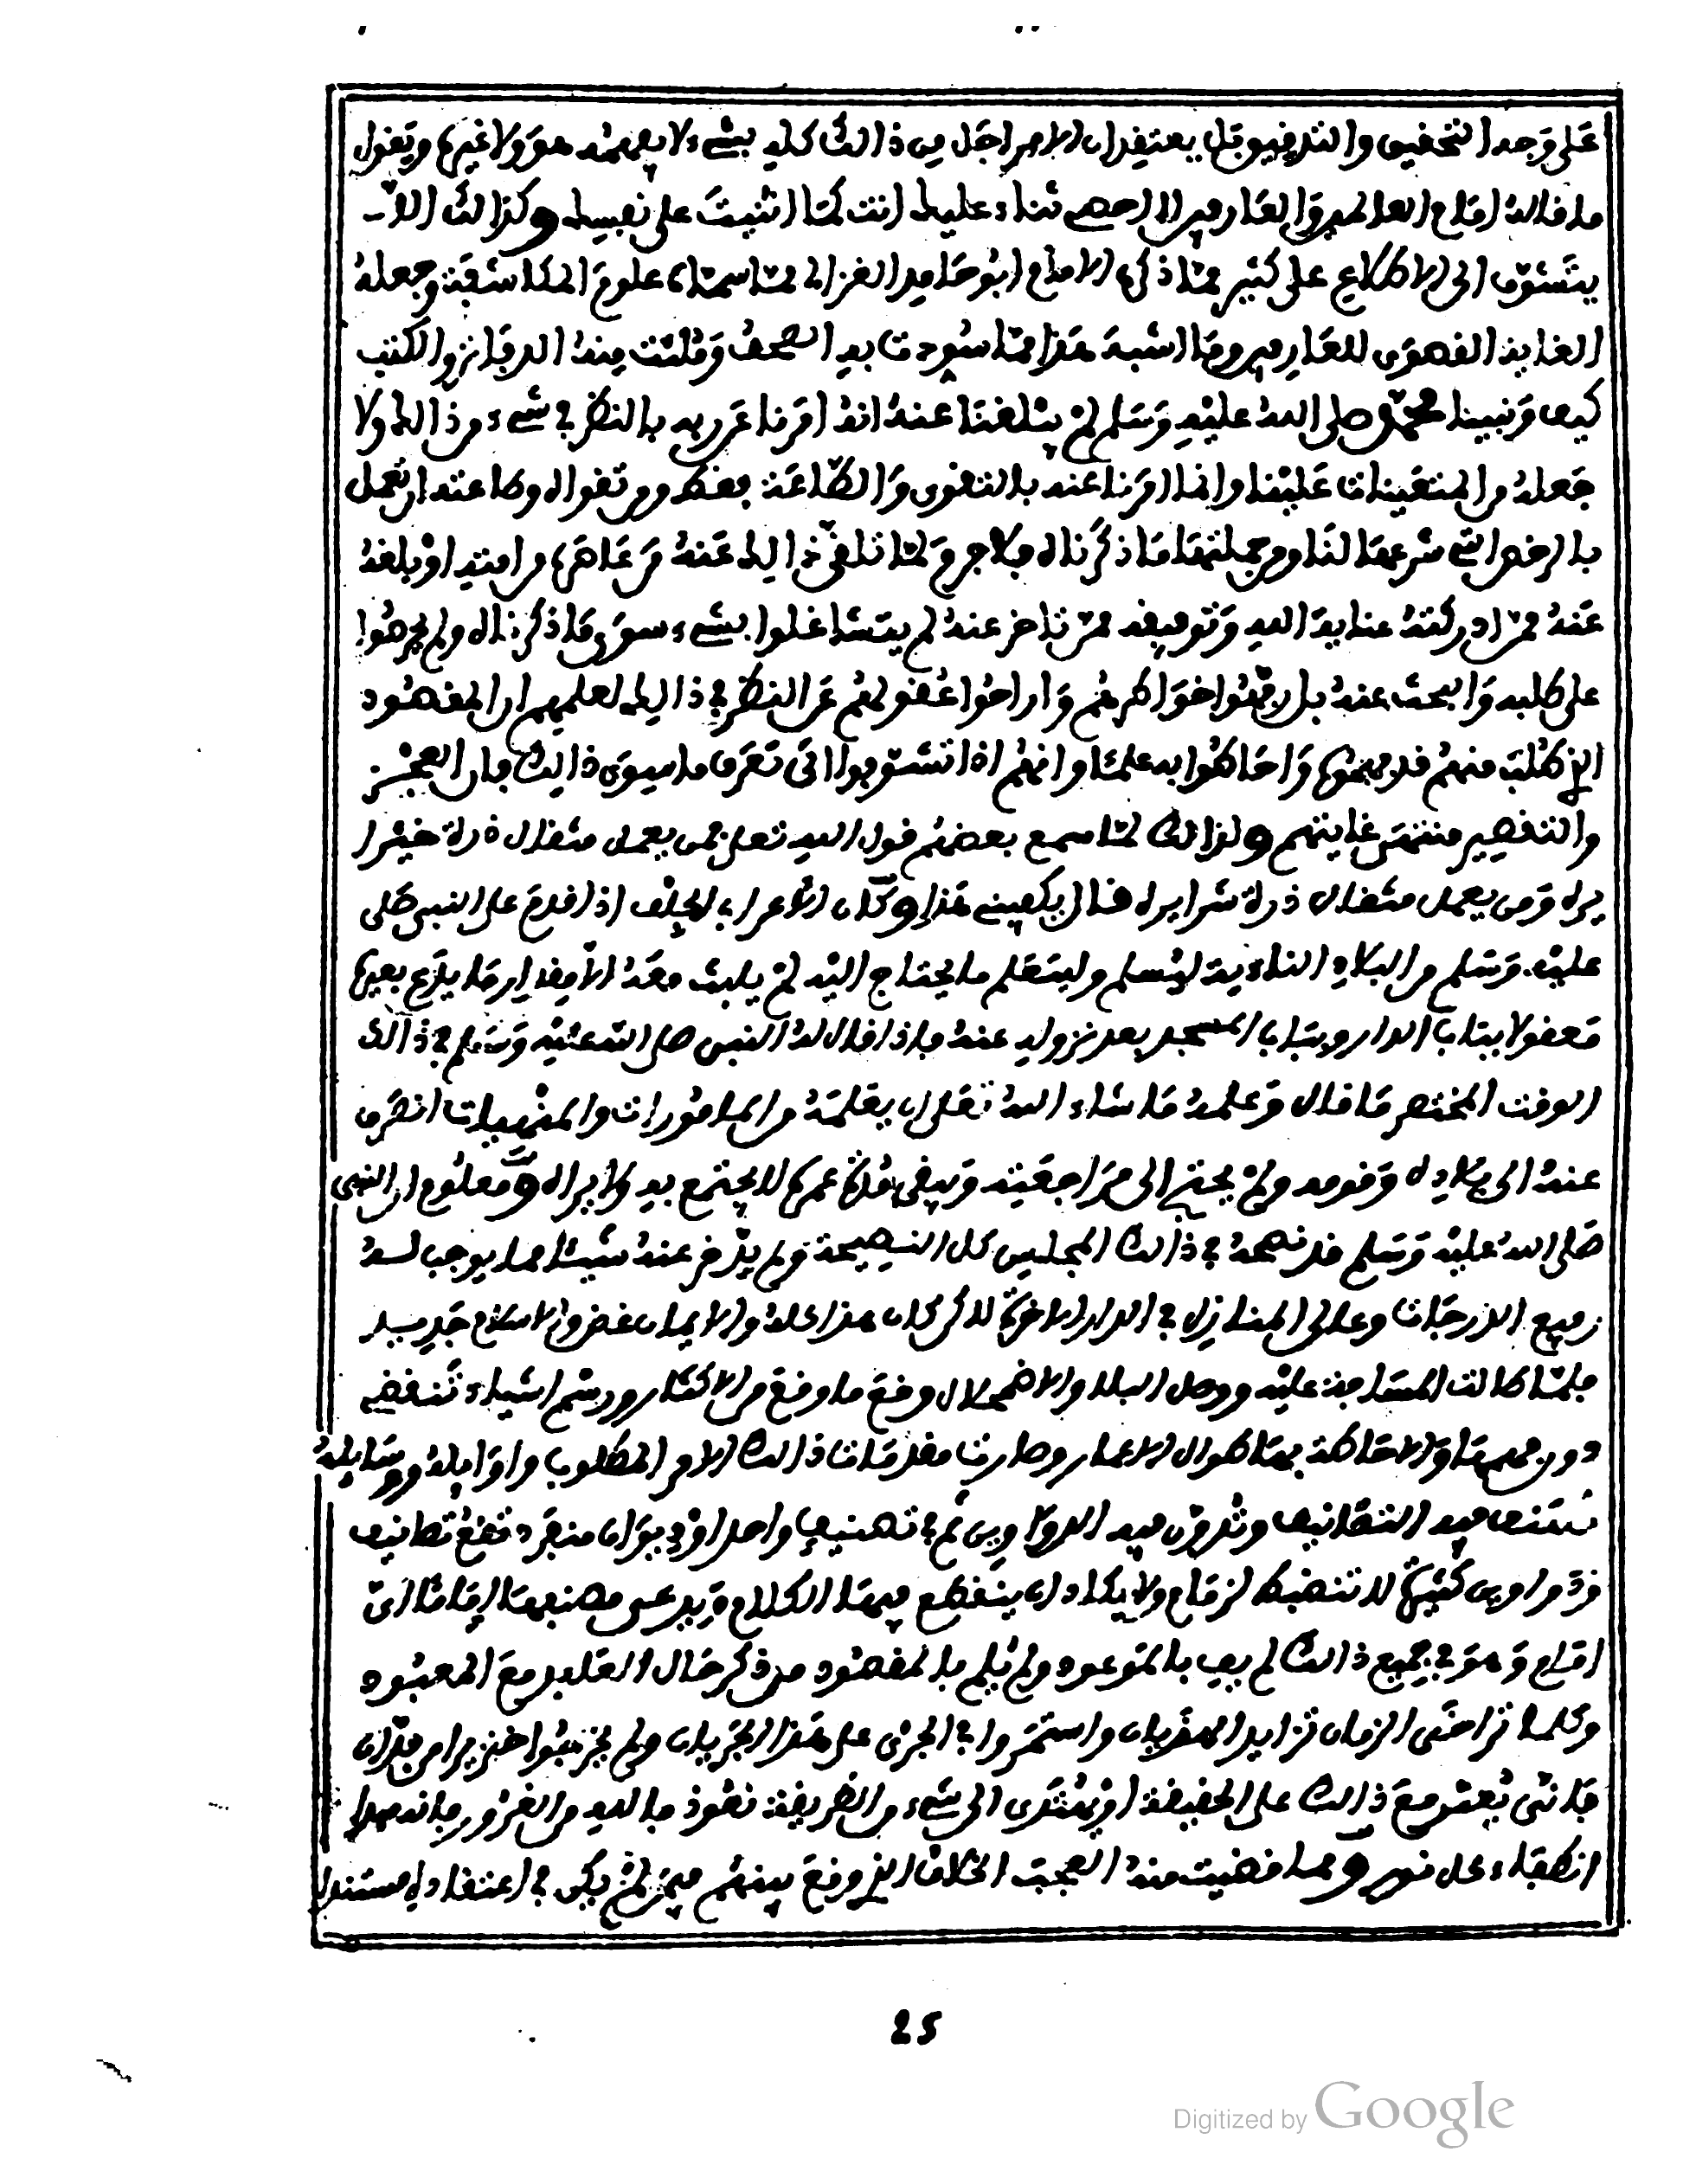 على وجه التحقيق والتدقيق بل يعتقد ان الامر اجل من ذالك كله بشيء لا يفهمه هو ولا غيره ويقول
ما قاله امام العالمين والعارفين لا احصي ثناء عليك انت كما اثنيت على نفسك وكذالك الا
يتشوق الى الاطلاع على كثير مما ذكره الامام ابو حامد الغزالي مما سماه علوم المكاشفة وجعله
الغاية القصوى للعارفين وما اشبه هذا مما سودت به الصحف وملئت منه الدفاتر والكتب
كيف ونبينا محمد صلى الله عليه وسلم لم يبلغنا عنه انه امرنا عن ربه بالنظر في شيء من ذالك ولا
جعله من المتعينات علينا وانما امرنا عنه بالتقوى والطاعة فقط ومن تقواه وطاعته ان نعمل
بالرخص التي شرعها لنا ومن جملتها ما ذكرناه فلا جرم لما تلقى ذالك عنه من عاصره من امته او بلغه
عنه ممن ادركته عناية الله وتوفيقه ممن تاخر عنه لم يتشاغلوا بشيء سوى ما ذكرناه ولم يحرصوا
على طلبه والبحث عنه بل رفهوا خواطرهم واراحوا عقولهم عن النظر في ذالك لعلمهم ان المقصود
الذي طلب منهم قد فهموه واحاطوا به علما وانهم اذا تشوفوا الى تعرف ما سوى ذالك فان العجز
والتقصير منتهى غايتهم ولذالك لما سمع بعضهم قول الله تعلى فمن يعمل مثقال ذرة خيرا
يره ومن يعمل مثقال ذرة شرا يره قال يكفيني هذا وكان الاعرابي الجلف اذا قدم على النبي صلى
عليه وسلم من البلاد النائية ليسلم وليتعلم ما يحتاج اليه لم يلبث معه الا مقدار ما يدع بعيره
معقولا بباب الدار وبباب المسجد بعد نزوله عنه فاذا قال له النبي صلى الله عليه وسلم في ذالك
الوقت المختصر ما قال وعلمه ما شاء الله تعلى ان يعلمه من المامورات والمنهيات انصرف
عنه الى بلاده وقومه ولم يحتج الى مراجعته وبقي مدة عمره لا يجتمع به ولا يراه ومعلوم ان النبي
صلى الله عليه وسلم قد نصحه في ذالك المجلس كل النصيحة ولم يدخر عنه شيئا مما يوجب لسه
رفيع الدرجات وعالي المنازل في الدار الاخرة لاكن كان هذا كله والايمان غض والاسلام جديد
فلما طالت المسافة عليه ووصل البلا والاضمحلال وقع ما وقع من الاكثار ورسم اشياء تنقضي
دون فهمها والاحاطة بها طوال الاعمار وصارت مقدمات ذالك الامر المطلوب واوايله ووسايله
تصنف فيه التصانيف وتدون فيه الدواوين ثم في تصنيف واحد او ديوان منفرد تقع تصانيف
ودواوين كثيرة لا تنضبط لزمام ولا يكاد ان ينقطع فيها الكلام ويدعى مصنفها اماما اي
امام وهو في جميع ذالك لم يف بالموعود ولم يلم بالمقصود من ذكر حال العابد مع المعبود
وكلما تراخى الزمان تزايد الهذيان واستمروا في الجري على هذا الجريان ولم يجربوا خنزيرا من
فانى يعثر مع ذالك على الحقيقة او يهتدى الى شيء من الطريقة نعوذ بالله من الغرور فانه
انطفاء كل نور ومما قضيت منه العجب الخلاف الذي وقع بينهم فيمن لم يكن في اعتقاده مستندا
25
Digitized by Google